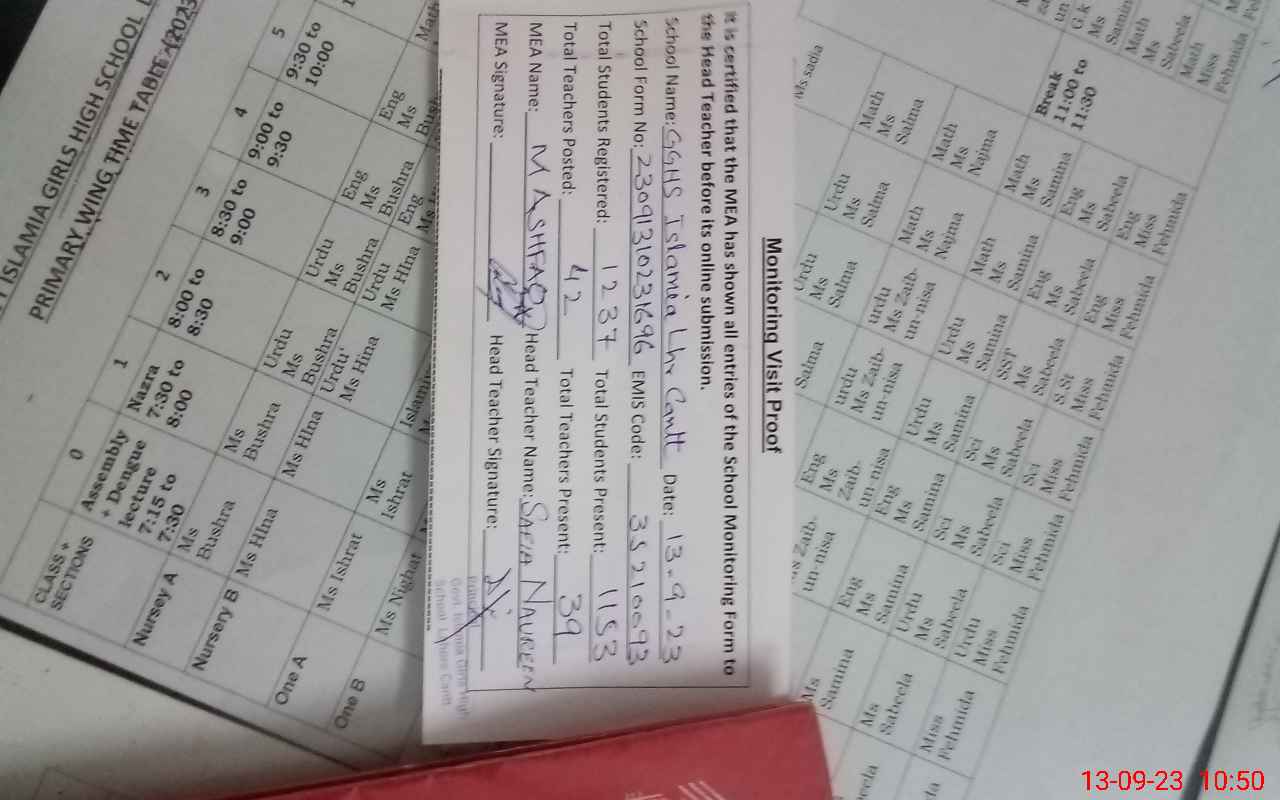 Monitoring Visit Proof
It is certified that the MEA has shown all entries of the School Monitoring Form to
the Head Teacher before its online submission.
School Name: GGHS Islamia Lhr Cantt Date: 13-9-23
School Form No: 23091310231696 EMIS Code: 35210093
Total Students Registered: 1237 Total Students Present: 1153
Total Teachers Posted: 42 Total Teachers Present: 39
MEA Name: M ASHFAQ Head Teacher Name: SAFIA NAUREEN
MEA Signature: Head Teacher Signature:
Govt. Islamia Girls High
School Lahore Cantt
ISLAMIA GIRLS HIGH SCHOOL
PRIMARY WING TIME TABLE (2023
CLASS + SECTIONS
0 1 2 3 4 5
Assembly + Dengue lecture 7:15 to 7:30
Nazra 7:30 to 8:00
8:00 to 8:30
8:30 to 9:00
9:00 to 9:30
9:30 to 10:00
Break 11:00 to 11:30
Nursey A Ms Bushra Ms Bushra Urdu Ms Bushra Urdu Ms Bushra Eng Ms Bushra Eng Ms
Nursery B Ms Hna Ms Hna Urdu Ms Hina Urdu Ms Hna Eng
One A Ms Ishrat Ms Ishrat
One B Ms Nighat
Ms sadia
Salma Urdu Ms Salma Urdu Ms Salma Math Ms Salma
Zaib-un-nisa Eng Ms Zaib-un-nisa urdu Ms Zaib-un-nisa urdu Ms Zaib-un-nisa Math Ms Najma Math Ms Najma
Ms Samina Eng Ms Samina Eng Ms Samina Urdu Ms Samina Urdu Ms Samina Math Ms Samina Math Ms Samina G.k Ms Samina
Ms Sabeela Urdu Ms Sabeela Sci Ms Sabeela Sci Ms Sabeela SST Ms Sabeela Eng Ms Sabeela Eng Ms Sabeela Math Ms Sabeela
Miss Fehmida Urdu Miss Fehmida Sci Miss Fehmida Sci Miss Fehmida S St Miss Fehmida Eng Miss Fehmida Eng Miss Fehmida Math Miss Fehmida
13-09-23 10:50